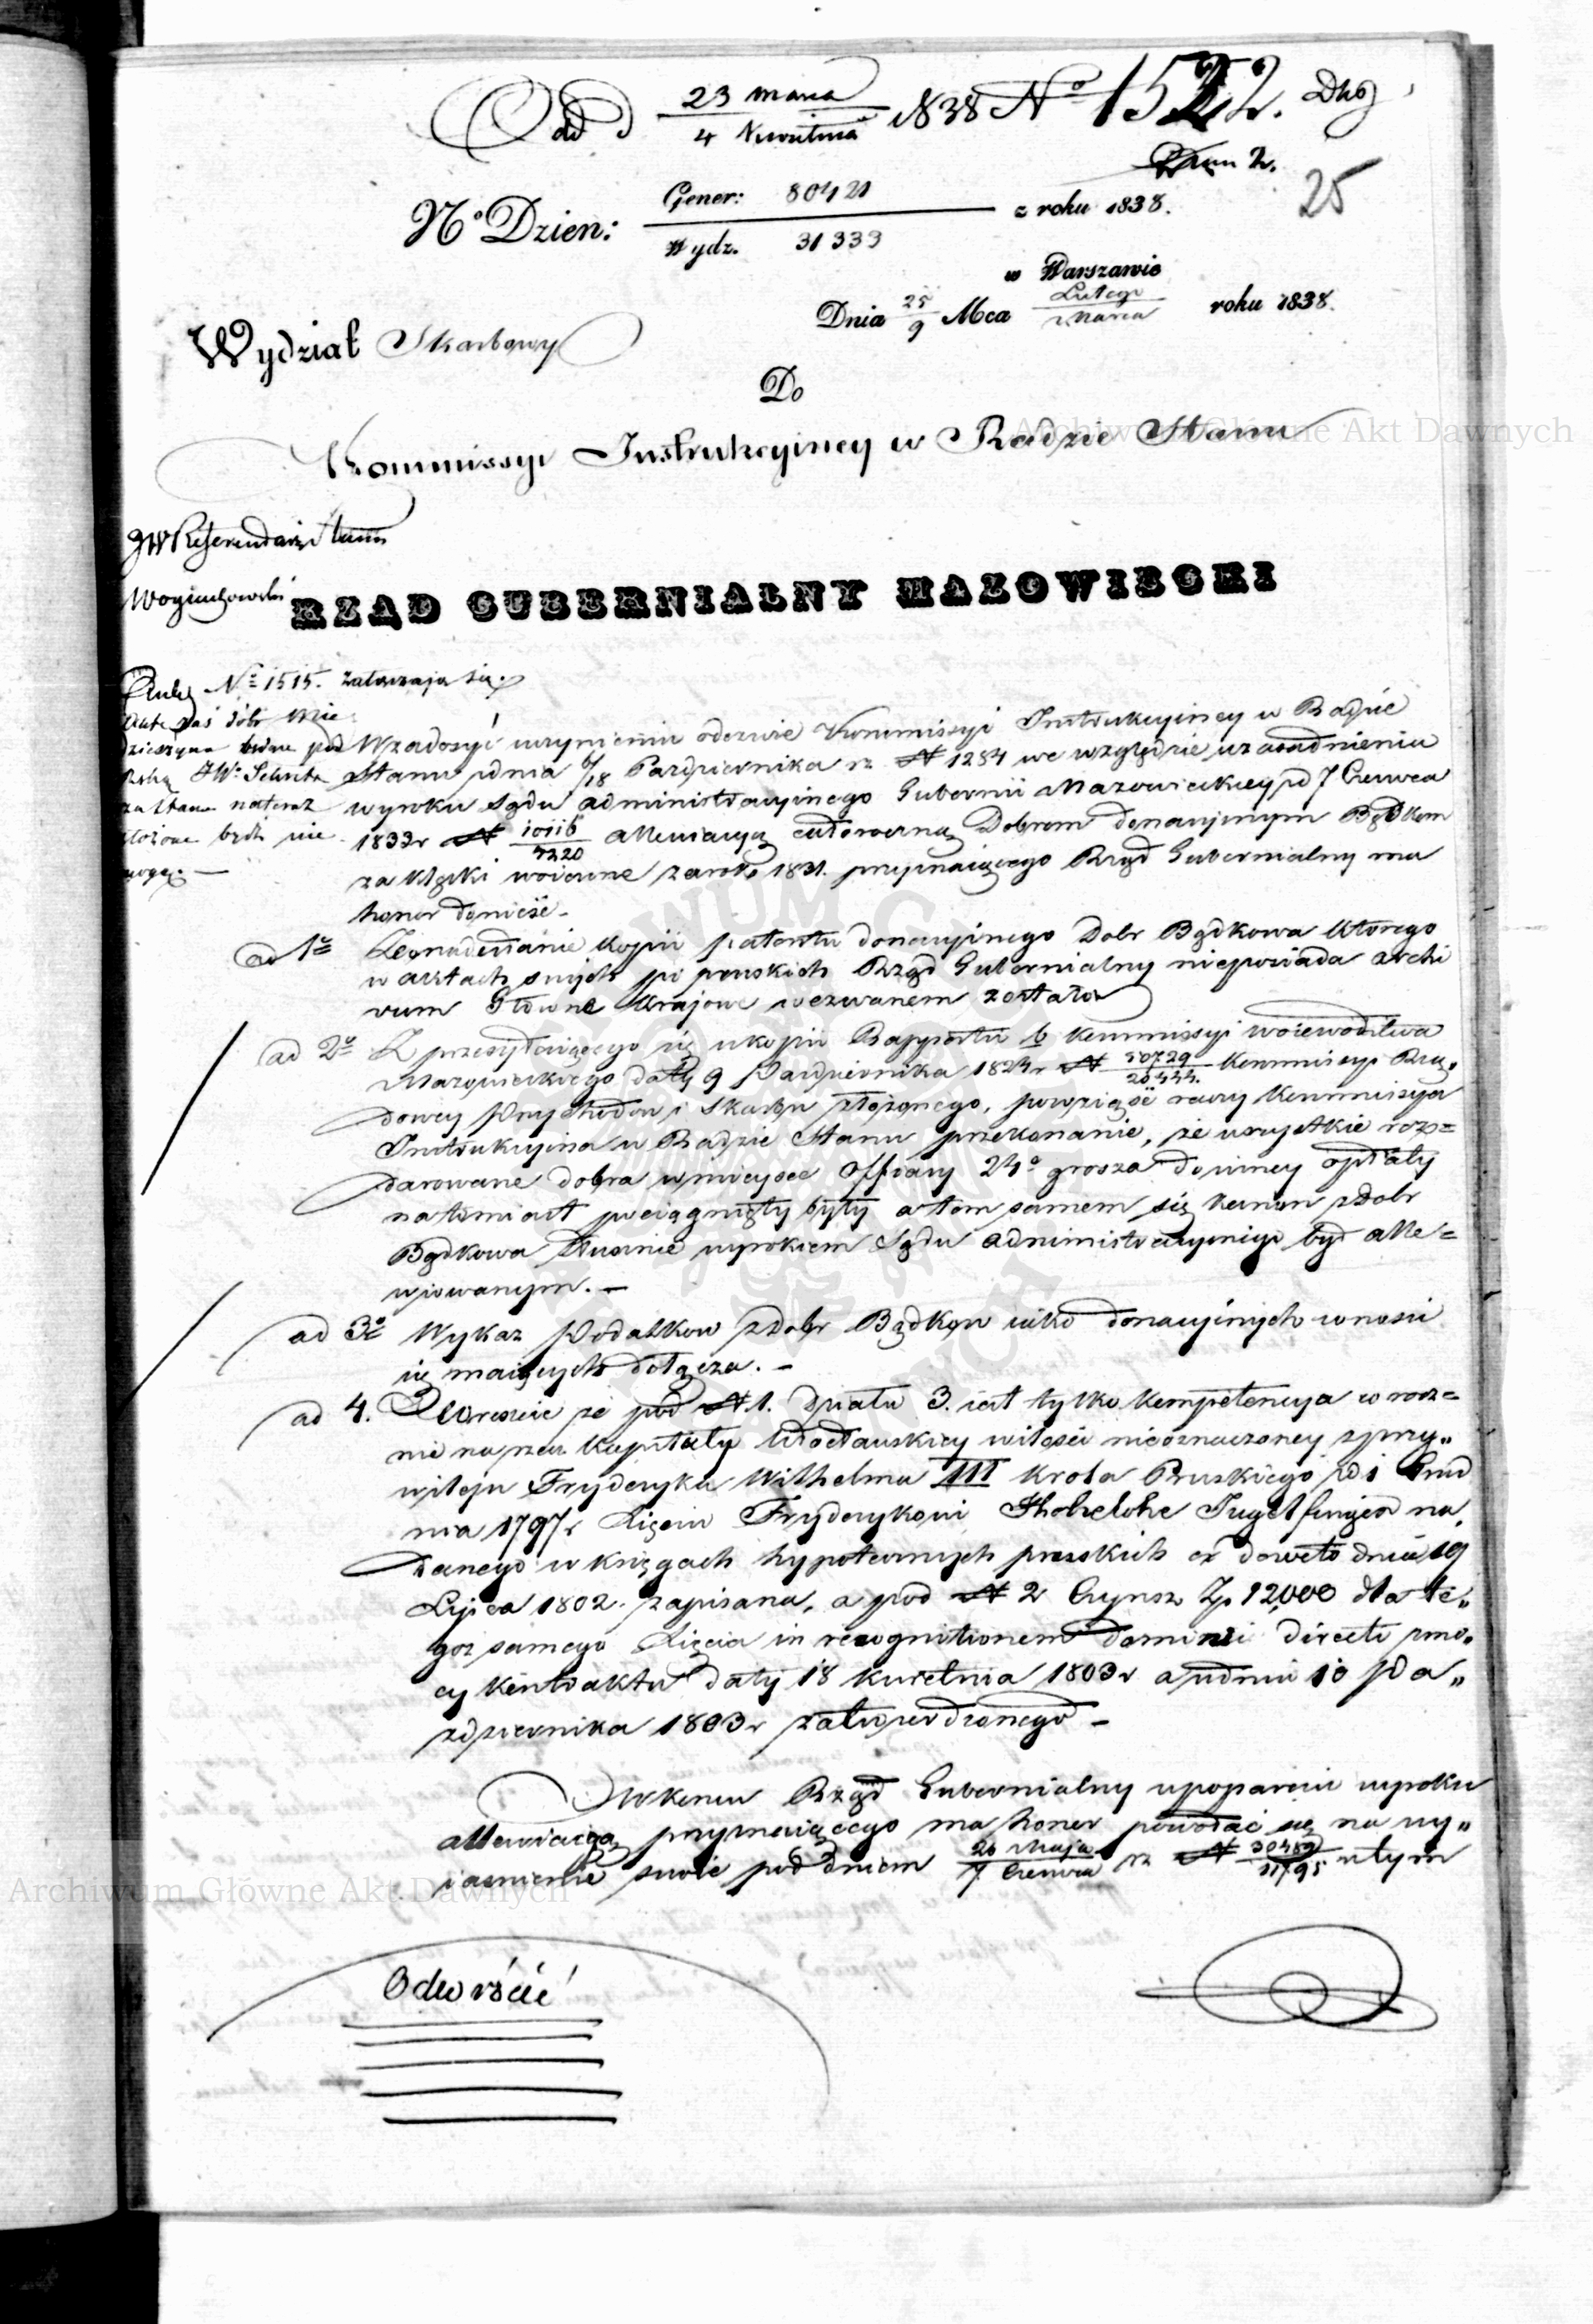 Odd 23 Marca / 4 Kwietnia 1838 Nº 1522.
25
Nº Dzien: Gener: 80421 / Wydz. 31333 z roku 1838.
w Warszawie
Dnia 25/9 Mca Lutego/Marca roku 1838.
Wydział Skarbowy
Do
Kommissyi Instrukcyiney w Radzie Stanu
JW Referendarz Stanu
Woyciechowski
RZĄD GUBERNIALNY MAZOWIECKI
Nº 1515. załączają się.
Akta zaś dóbr
będące pod
JW.
na teraz
złożone być nie
mogą. —
Wzadosyć uczynieniu odezwie Kommissyi Instrukcyiney w Radzie
Stanu z dnia 6/18 Października r. z. Nº 1254 we względzie uzasadnienia
wyroku Sądu administracyinego Gubernii Mazowieckiey z d. 7 Czerwca
1833 r Nº 10116/4220 allewiacyą całoroczną Dobrom donacyinym Bądkow
za klęski woienne za rok 1831. przyznaiącego Rząd Gubernialny ma
honor donieść –
ad 1º O nadesłanie kopii patentu donacyinego Dobr Bądkowa którego
w aktach swych po pruskich Rząd Gubernialny nieposiada archi
wum Główne Kraiowe wezwanem zostało
ad 2º Z przesyłaiącego się w kopii Rapportu b Kommissyi woiewodztwa
Mazowieckiego daty 9 Października 1824 r Nº 50729/20444. Kommissyi Rzą„
dowey Przychodow i Skarbu złożonego, powziąść raczy Kommissya
Instrukcyina w Radzie Stanu przekonanie, że wszystkie roz=
darowane dobra w mieysce Offiary 24º grosza do inney opłaty
natomiast pociągnięty były a tem samem się Kanon z Dobr
Bądkowa słusznie wyrokiem Sądu administracyinego był alle=
wiowanym. –
ad 3º Wykaz Podatkow z Dobr Bądkow iako donacyinych wnosić
się maiących dołącza. –
ad 4. Wreszcie że pod Nº 1. działu 3. iest tylko kompetencya w rocz=
nie na rzecz Kapituły Włocławskiey w ilości nieoznaczoney z przy„
wileju Fryderyka Wilhelma III Krola Pruskiego z d 1 Grud
nia 1797 r Xięciu Fryderykowi Hohelohe Ingelfingen na„
danego w księgach hypotecznych pruskich ex decreto dnia 19
Lipca 1802. zapisana, a pod Nº 2 Czynsz Zp 12,000 dla te„
goż samego Xięcia in recognitionem dominii directi z mo„
cy kontraktu daty 18 kwietnia 1803 r a w dniu 10 Pa„
zdziernika 1803 r zatwierdzonego –
W końcu Rząd Gubernialny w poparciu wyroku
allewiacyą przyznaiącego ma honor powołać się na wy„
iaśnienie swoie pod dniem 26 Maja / 7 Czerwca r. z. Nº 30489/11795 w tym
Odwróćić